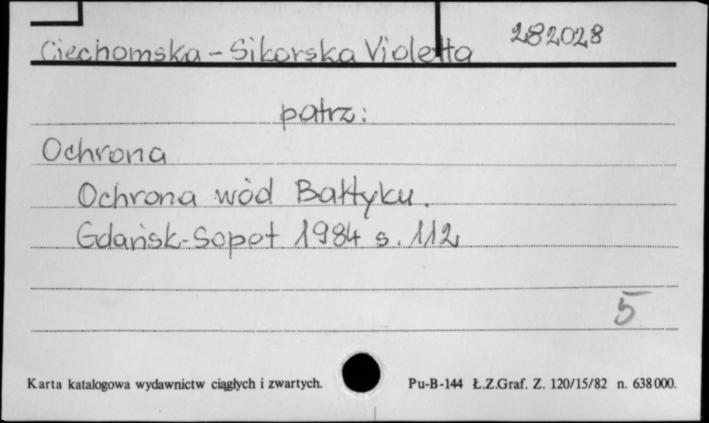 Ciechomska-Sikorska Violetta 282028
patrz:
Ochrona
Ochrona wód Bałtyku.
Gdańsk-Sopot 1984 s. 112
5
Karta katalogowa wydawnictw ciągłych i zwartych. Pu-B-144 Ł.Z.Graf. Z. 120/15/82 n. 638000.